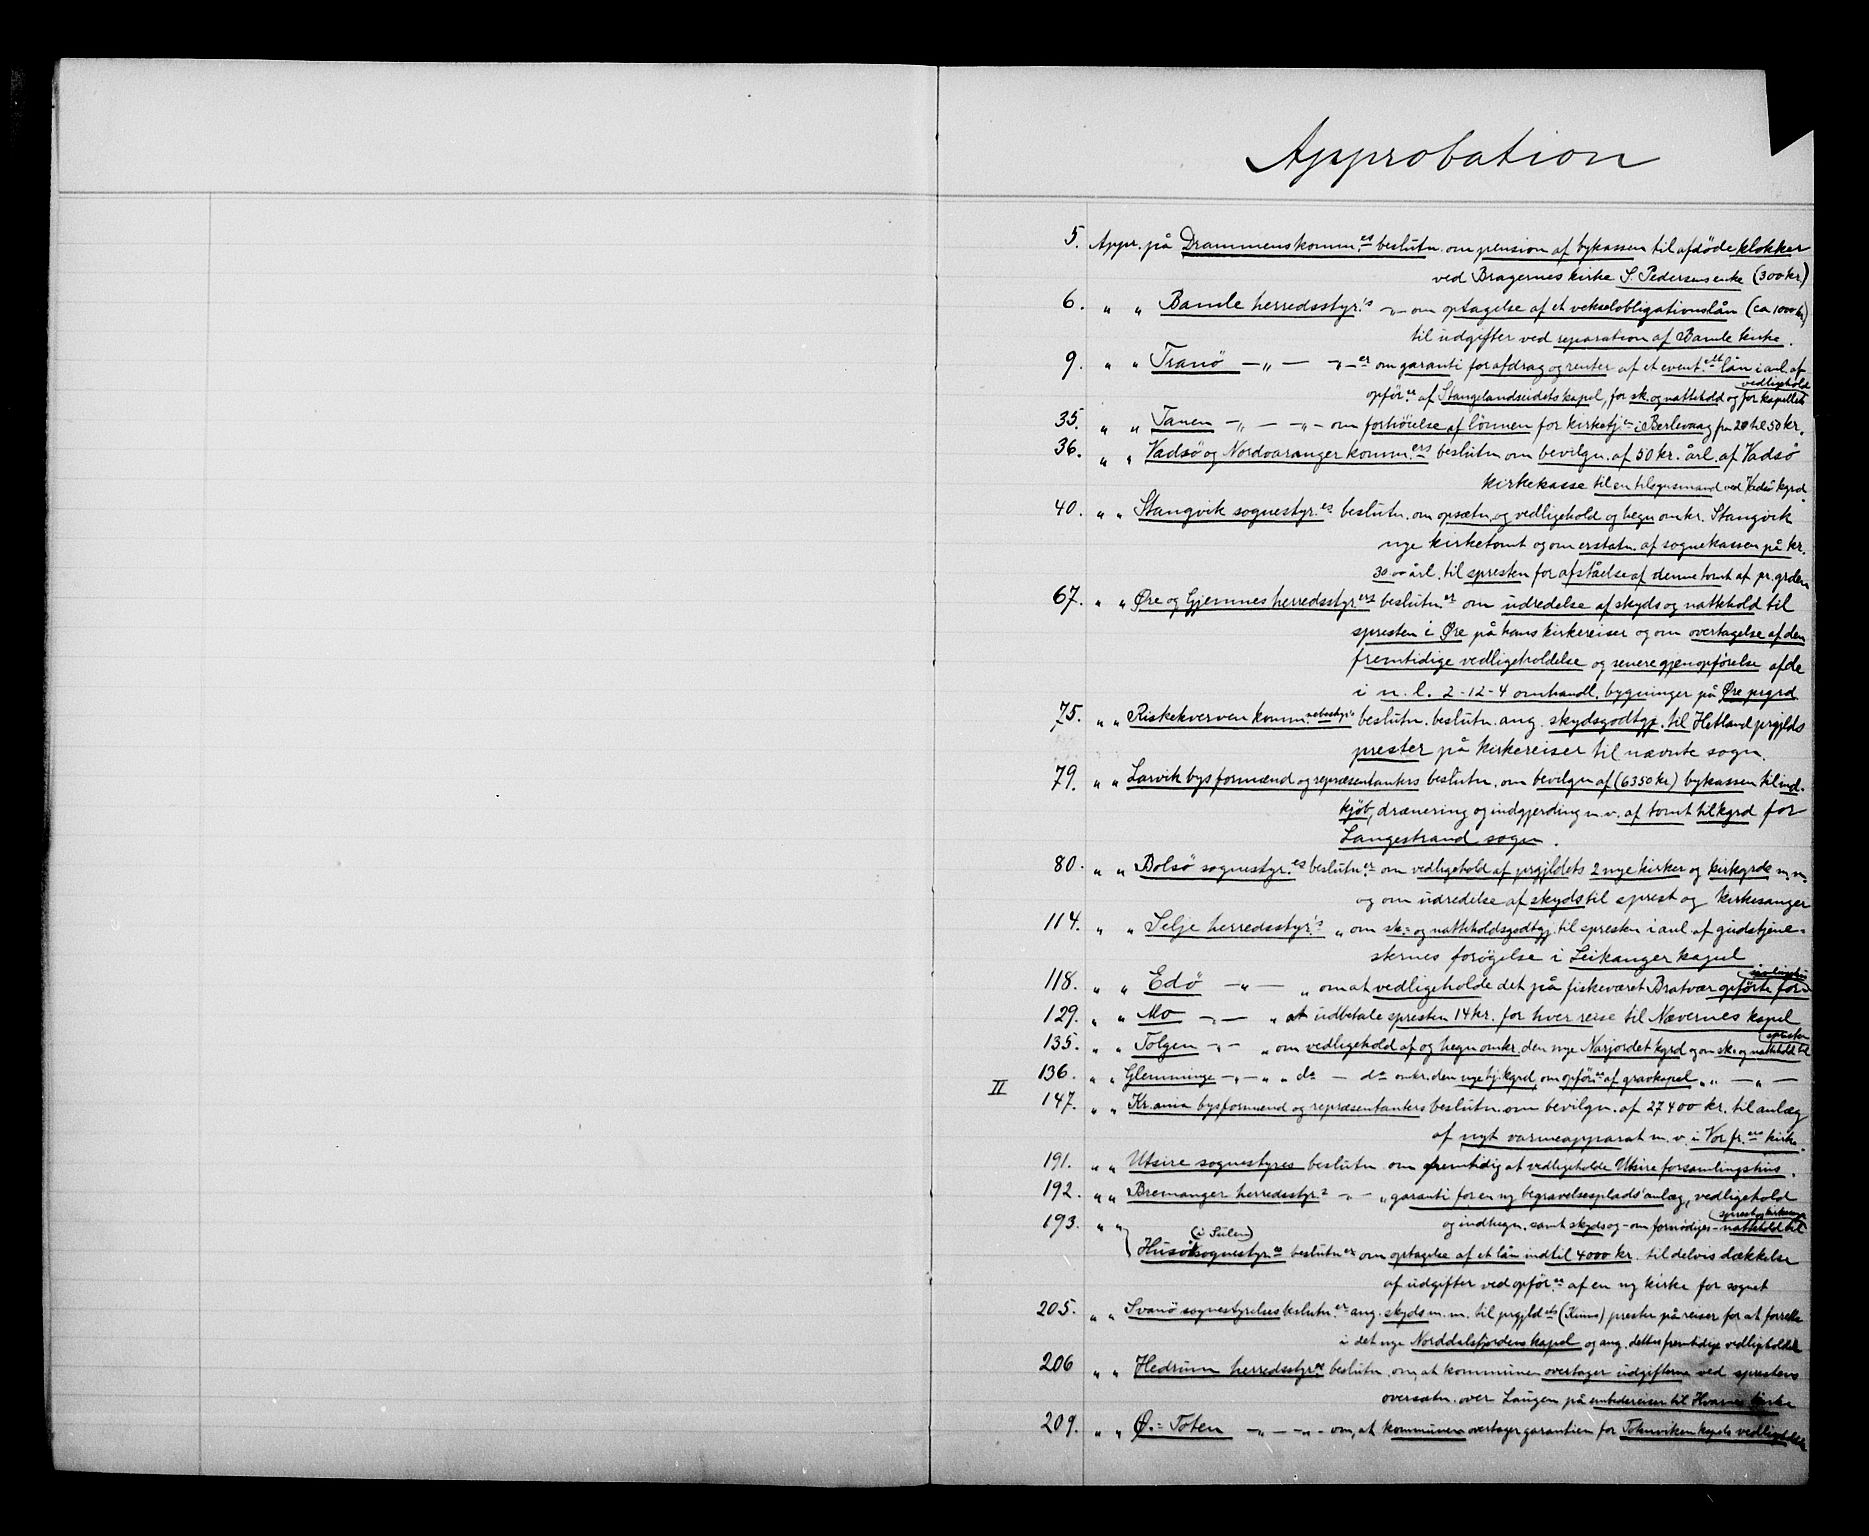 Approbation
5. Appr. på Drammens komm.es beslutn. om pension af bykassen til afdøde klokker
ved Bragernes kirke S. Pedersens enke (300 kr.)
6. " " Bamle herredsstyr.'s -"- om optagelse af et vekselobligationslån (ca 1000 kr)
til udgifter ved reparation af Bamle kirke.
9. " " Tranö -"- -"-er om garanti for afdrag og renter af et event.elt lån i anl. af
opför.se af Stangelandseidets kapel, for sk. og nattehold og for kapellets vedligehold
35. " " Tanen -"- -"- om forhöielse af lönnen for kirketj. i Berlevaag fra 20 til 50 kr.
36. " " Vadsö og Nordvaranger komm.ers beslutn om bevilgn. af 50 kr. årl. af Vadsö
kirkekasse til en tilsynsmand ved Vadsö kgrd.
40. " " Stangvik sognestyr.es beslutn. om opsætn. og vedligehold og hegn omkr. Stangvik
nye kirketomt og om erstatn. af sognekassen på kr.
30.00 årl. til spresten for afståelse af denne tomt af pr.grden
67. " " Øre og Gjemnes herredsstyr.ers beslutn.er om udredelse af skyds og nattehold til
spresten i Øre på hans kirkereiser og om overtagelse af den
fremtidige vedligeholdelse og senere gjenopförelse af de
i n. l. 2-12-4 omhandl. bygninger på Øre prgrd
75. " " Riskekverven komm.nebestyr's beslutn. beslutn. ang. skydsgodtgj. til Hetland prgjlds
prester på kirkereiser til nævnte sogn.
79. " " Larvik bys formænd og repræsentanters beslutn. om bevilgn af (6350 kr) bykassen til ind-
kjöb, drænering og indgjerding m.v. af tomt til kgrd for
Langestrand sogn.
80. " " Bolsö sognestyr.es beslutn.er om vedligehold af prgjldets 2 nye kirker og kirkgrde m.m.
og om udredelse af skyds til sprest og kirkesanger
114. " " Selje herredsstyr.'s " om sk.- og natteholdsgodtgj. til spresten i anl. af gudstjene-
sternes forögelse i Leikanger kapel
118. " " Edö -"- " om at vedligeholde det på fiskeværet Bratvær opförte forsamlingshus
129. " " Mo -"- " at udbetale spresten 14 kr. for hver reise til Nævernes kapel
135. " " Tolgen -"- " om vedligehold af og hegn omkr. den nye Narjordet kgrd og om sk. og nattehold til spresten
II 136. " " Glemminge -"- " " do - do omkr. den nye tj. kgrd, om opför.se af gravkapel " " - " -
147. " " Kr.ania bys formænd og repræsentanters beslutn. om bevilgn. af 27400 kr. til anlæg
af nyt varmeapparat m.v. i Vor fr.ers kirke.
191. " " Utsire sognestyres beslutn om fremtidig at vedligeholde Utsire forsamlingshus.
192. " " Bremanger herredsstyr.s -"- " garanti for en ny begravelsesplads' anlæg, vedligehold
og indhegn. samt skyds og - om fornödiges - nattehold til sprest og kirkesanger
193. " " Husö (i Sulen) sognestyr.es beslutn.er om optagelse af et lån indtil 4000 kr. til delvis dækkelse
af udgifter ved opför.se af en ny kirke for sognet
205. " " Svanö sognestyrelses beslutn.er ang. skyds m.m. til prgjldets (Kinns) prester på reiser for at forrette
i det nye Norddalsfjordens kapel og ang. dettes fremtidige vedligeholdelse
206 " " Hedrum herredsstyr.es beslutn. om, at kommunen overtager udgifterne ved sprestens
oversætn. over Laagen på embedsreiser til Hvarnes kirke
209. " " Ø.= Toten -"- -"- om, at kommunen overtager garantien for Totenviken kapels vedligeholdelse